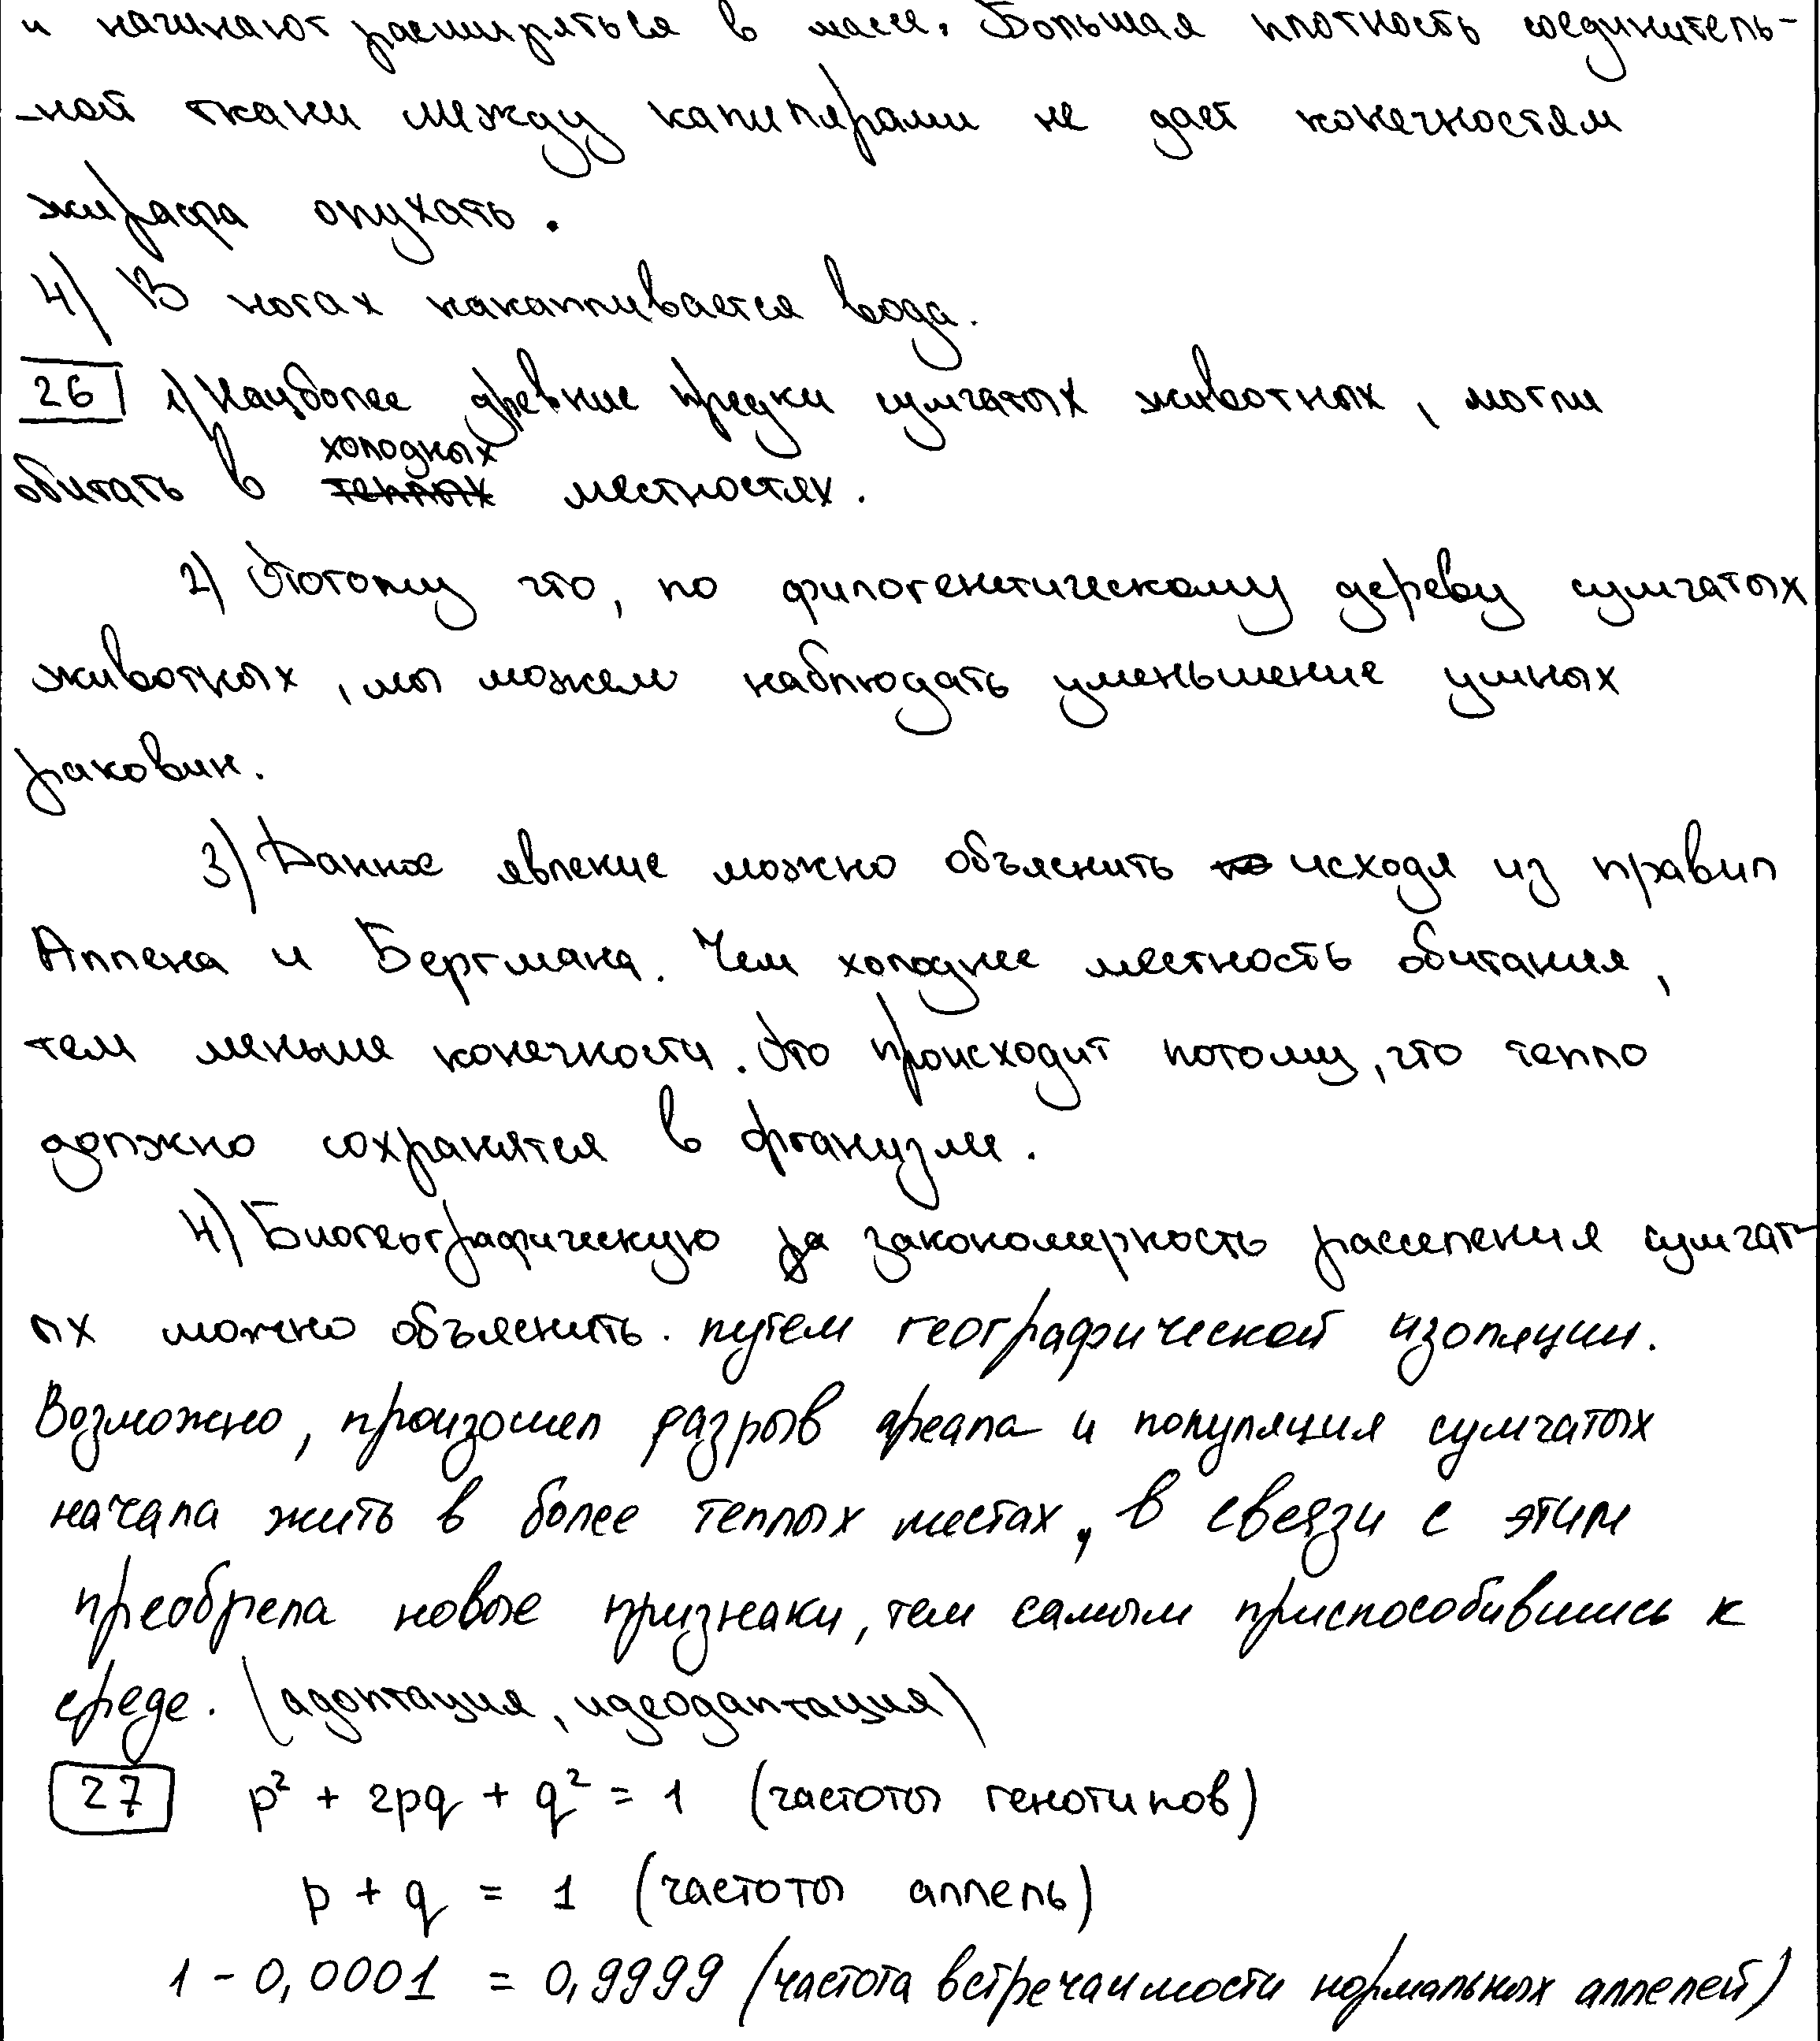 и начинают расширяться в массе. Большая плотность соединитель-
-ной ткани между капилярами не дает конечностям
жирафа опухать.
4) В ногах накапливается вода.
26 1) Наиболее древние предки сумчатых животных, могли
холодных
обитать в теплых местностях.
2) Потому что, по филогенетическому дереву сумчатых
животных, мы можем наблюдать уменьшение ушных
раковин.
3) Данное явление можно объяснить по исходя из правил
Аллена и Бергмана. Чем холоднее местность обитания,
тем меньше конечности. Это происходит потому, что тепло
должно сохранятся в организме.
4) Биогеографическую ра закономерность расселения сумчат-
ых можно объяснить. путем географической изоляции.
Возможно, произошел разрыв ареала и популяция сумчатых
начала жить в более теплых местах, в связи с этим
преобрела новые признаки, тем самым приспособившись к
среде. (адоптация, идеодаптация)
27 p² + 2pq + q² = 1 (частоты генотипов)
p + q = 1 (частоты аллель)
1 - 0,0001 = 0,9999 (частота встречаимости нормальных аллелей)